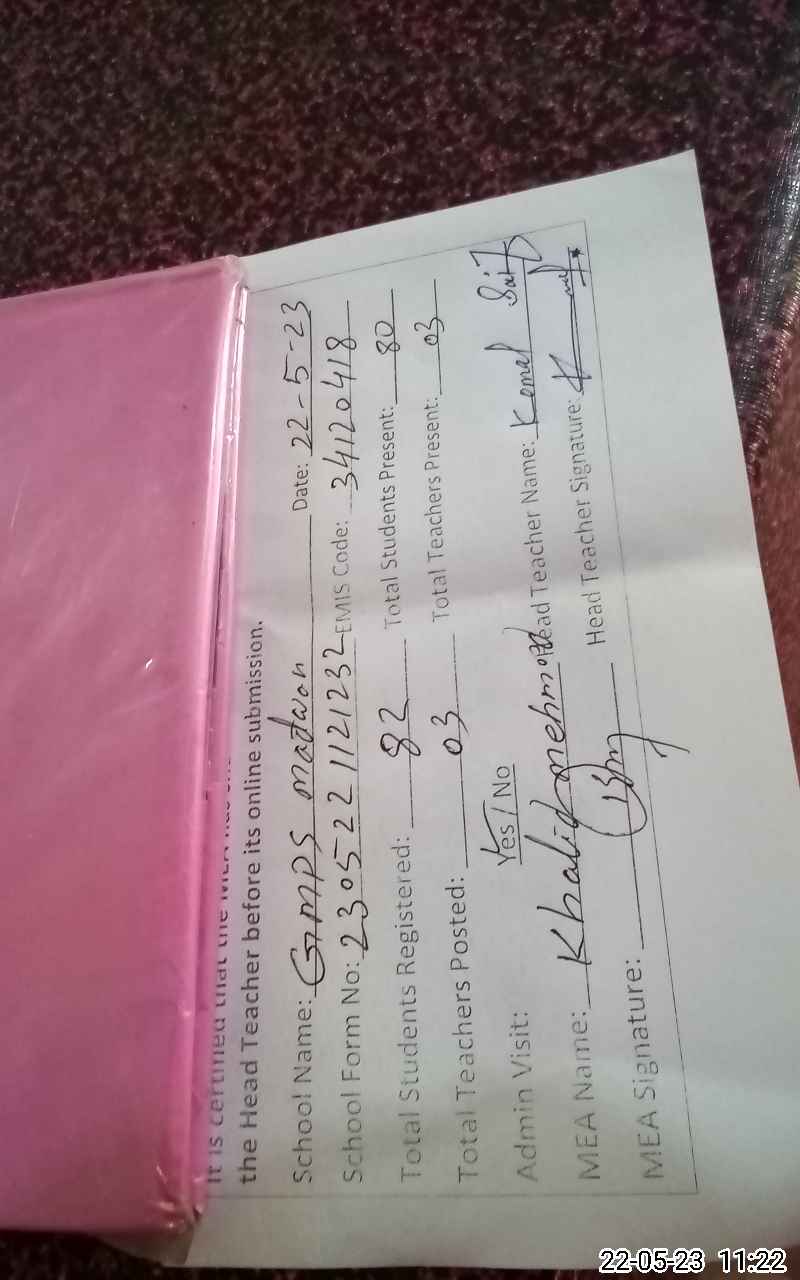 It is certified that the MEA has
the Head Teacher before its online submission.
School Name: GMPS madwan Date: 22-5-23
School Form No: 230522 1121232 EMIS Code: 34120418
Total Students Registered: 82 Total Students Present: 80
Total Teachers Posted: 03 Total Teachers Present: 03
Admin Visit: Yes / No
MEA Name: Khalid mehmood Head Teacher Name: Komal
MEA Signature: Head Teacher Signature:
22-05-23 11:22